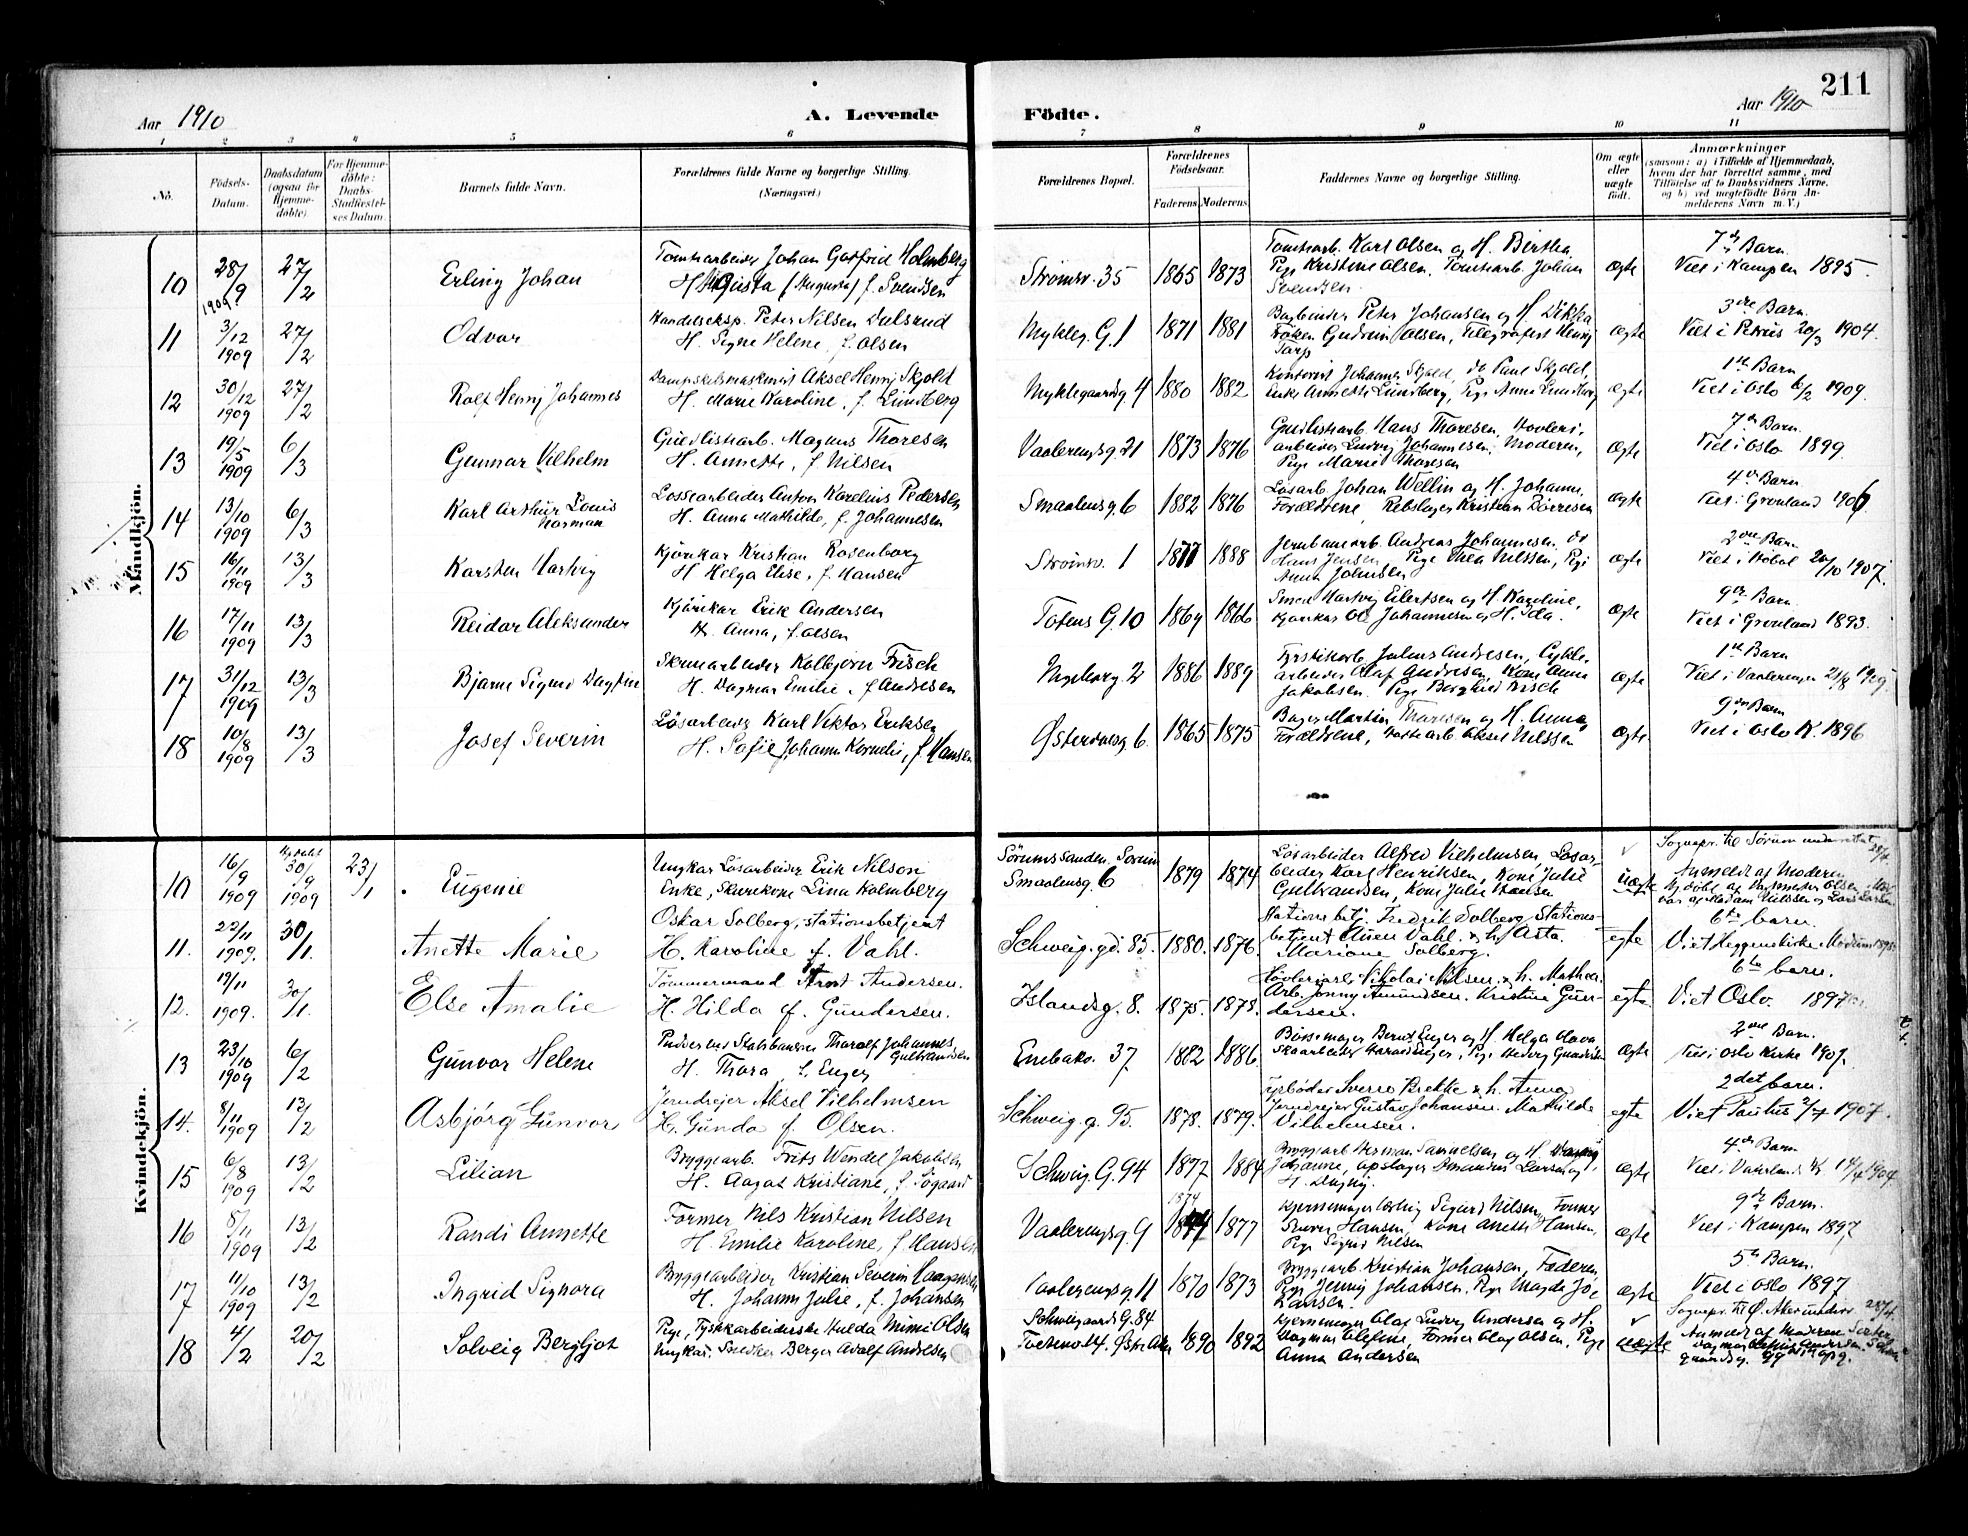 211
Aar 1910
A. Levende Födte.
Aar 1910
1 2 3 4 5 6 7 8 9 10 11
No.
Födsels-Datum.
Daabsdatum (ogsaa for Hjemme-døbte).
For Hjemme-døbte: Daabs-Stadfæstel-ses Datum.
Barnets fulde Navn.
Forældrenes fulde Navne og borgerlige Stilling.
(Næringsvei.)
Forældrenes Bopæl.
Forældrenes Födselsaar.
Faderens Moderens
Faddernes Navne og borgerlige Stilling.
Om ægte eller uægte födt.
Anmærkninger
(saasom: a) i Tilfælde af Hjemmedaab, hvem der har forrettet samme, med Tilföielse af to Daabsvidners Navne, og b) ved uægtefödte Börn An-melderens Navn m. V.)
Mandkjön.
10 28/9 1909 27/2 Erling Johan
Tomtearbeider Johan Gotfrid Holmberg
H. Augusta (Augusta) f. Svendsen
Strømsv. 35 1865 1873
Tomtearb. Karl Olsen og H. Birtha,
Pige Kristine Olsen, Tomtearb. Johan
Svendsen
ægte
7de Barn.
Viet i Kampen 1895.
11 3/12 1909 27/2 Odvar
Handelseksp. Peter Nilsen Dalsrud
H. Signe Helene, f. Olsen
Nykleg. G. 1 1871 1881
Bogbinder Peter Johansen og H. Dikka
Frøken Gudrun Olsen, Telegrafist Henry
Tarp
ægte
3die Barn.
Viet i Petrus 20/3 1904.
12 30/12 1909 27/2 Rolf Henry Johannes
Dampskibsmaskinist Aksel Henry Skjold
H. Marie Karoline, f. Lundberg
Nyklegaardsg 4 1880 1882
Kontorist Johannes Skjold, do Paul Skjold,
Enke Annette Lundberg, Pige Anna Lundberg
ægte
1ste Barn
Viet i Oslo 6/2 1909.
13 19/5 1909 6/3 Gunnar Vilhelm
Guldlistarb. Magnus Thoresen
H. Annette, f. Nilsen
Vaalerengsg. 21 1873 1876
Guldlistarb. Hans Thoresen, Høvleri-
arbeider Ludvig Johannesen, Moderen,
Pige Marie Thoresen
ægte
7de Barn.
Viet i Oslo 1899
14 13/10 1909 6/3 Karl Arthur Louis
Norman
Lossearbeider Anton Karelius Pedersen
H. Anna Mathilde, f. Johannesen
Smaalensg. 6 1882 1876
Løsarb. Johan Wellin og H. Johanne,
Forældrene, Rebslager Kristian
ægte
4de Barn.
Viet i Grønland 1906.
15 16/11 1909 13/3 Karsten Hartvig
Kjørekar Kristian Rosenborg
H. Helga Elise, f. Hansen
Strømsv. 1 1877 1888
Jernbanearb. Andreas Johannesen, do
Hans Jensen Pige Thea Nilssen, Pige
Anna Johnsen
ægte
2den Barn
Viet i Hobøl 20/10 1907.
16 17/11 1909 13/3 Reidar Aleksander
Kjørekar Erik Andersen
H. Anna, f. Olsen
Totens G. 10 1869 1866
Smed Hartvig Eilertsen og H. Karoline,
Kjørekar Ole Johannesen og H. Ida.
ægte
9de Barn.
Viet i Grønland 1893.
17 31/12 1909 13/3 Bjarne Sigurd Dagfin
Skruearbeider Kolbjørn Frisch
H. Dagmar Emilie, f. Andresen
Ingeborg. 2 1886 1889
Fyrstikarb. Julius Andresen, Cykle-
arbeider Olaf Andresen, Kone Anna
Jakobsen. Pige Borghild Frisch
ægte
1ste Barn
Viet i Vaalerengen 21/8 1909.
18 10/8 1909 13/3 Josef Severin
Løsarbeider Karl Viktor Eriksen
H. Sofie Johanne Kornelie, f. Hansen
Østerdalsg 6. 1865 1875
Bager Martin Thoresen og H. Anna,
Forældrene, arb Aksel Nilssen
ægte
9de Barn
Viet i Oslo K. 1896
Kvindekjön.
10 16/9 1909 Hj. døbt 30/9 1909 23/1 Eugenie
Ungkar Løsarbeider Erik Nilson
Enke, Skurekone Lina Holmberg
Sørumssanden. Sørum
Smaalensg. 6 1879 1874
Løsarbeider Alfred Vilhelmsen, Løsar-
beider Karl Henriksen, Kone Julie
Gulbrandsen, Kone Julie Hansen
uægte
Sognepr. til Sørum underrettet
Anmeldt af Moderen
11. 22/11 1909. 30/1. Anette Marie
Oskar Solberg, stationsbetjent
H. Karoline f. Vahl.
Schweig. gd. 85. 1880. 1876.
Stationsbetj. Fredrik Solberg, Stations-
betjent Vahl & h. Asta.
Mariane Solberg.
egte
6te barn.
Viet Heggens kirke Modum 1898.
12. 19/11 1909. 30/1. Else Amalie
Tømmermand Arnt Andersen.
H. Hilda f. Gundersen.
Islandsg. 8. 1875. 1878.
Høvleriarb. Nikolai Nilsen & h. Mathea.
Arb. Jonny Amundsen. Kristine Gun-
dersen.
egte
6te barn.
Viet Oslo. 1897
13 23/10 1909 6/2 Gunvor Helene
Pudser ved Statsbanerne Tharalf Johannes
Gulbrandsen
H. Thora, f. Enger
Enebakv. 37 1882 1886
Børsemager Bernt Enger og H. Helga
Skoarbeider Harald Enger, Pige Hedvig
ægte
2den Barn.
Viet i Oslo Kirke 1907.
14. 8/11 1909 13/2 Asbjörg Gunvor
Jerndreier Aksel Vilhelmsen
H. Gunda f. Olsen.
Schweig. g. 95. 1878. 1879.
Fyrbøder Sverre Brekke & h. Anna
Jerndreier Gustav Johansen. Mathilde
Vilhelmsen.
egte
2det barn.
Viet Paulus 2/7 1907.
15 6/8 1909 13/2 Lilian
Bryggearb. Frits Wendel Jakobsen
H. Aagot Kristiane, f. Søgaard
Schweig. G. 94 1877 1884
Bryggearb. Herman Samuelsen og H.
Johanne, Larsen og
H. Dagny.
ægte
4de Barn.
Viet i Vaterland 14/4 1904
16 8/11 1909 13/2 Randi Annette
Former Nils Kristian Nilsen
H. Emilie Karoline, f. Hansen
Vaalerengsg. 9 1874 1877
Gjørtlermagerlærling Sigurd Nilsen, Former
Hansen, Kone Anette Hansen,
Pige Sigrid Nilsen
ægte
9de Barn.
Viet i Kampen 1897,
17 11/10 1909 13/2 Ingrid Signora
Bryggearbeider Kristian Severin Haagensen
H. Johanne Julie, f. Johansen
Vaalerengsg. 11 1870 1873
Bryggearb. Kristian Johansen, Faderen,
Pige Jenny Johansen. Pige Magda Jo-
hansen.
ægte
5te Barn.
Viet i Oslo 1897
18 4/2 20/2 Solveig Bergljot
Pige, Tyskarbeiderske Hulda Mimi Olsen
Ungkar. Snedker Berger Adolf Andresen
Schweigaards G. 84
Østre Aker 1890 1892
Olaf Ludvig Andersen og H.
Dagmar Olefine, Former Olaf Olsen, Pige
Anna Andersen
uægte
Sognepr. til Ø. Aker underr 28/4
Anmeldt af Moderen